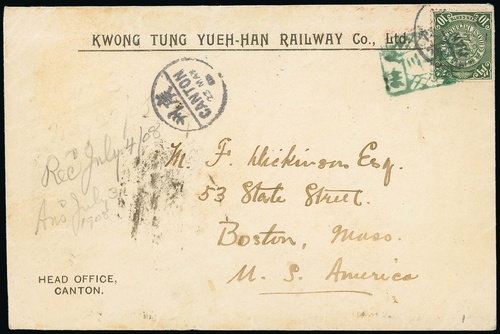 KWONG TUNG YUEH-HAN RAILWAY Co., Ltd.
CANTON
23 MAY
廣州
10
10
Rec'd July 4/08
Ans July 3
1908
M. F. Dickinson Esq.
53 State Street.
Boston, Mass.
U. S. America
HEAD OFFICE,
CANTON.